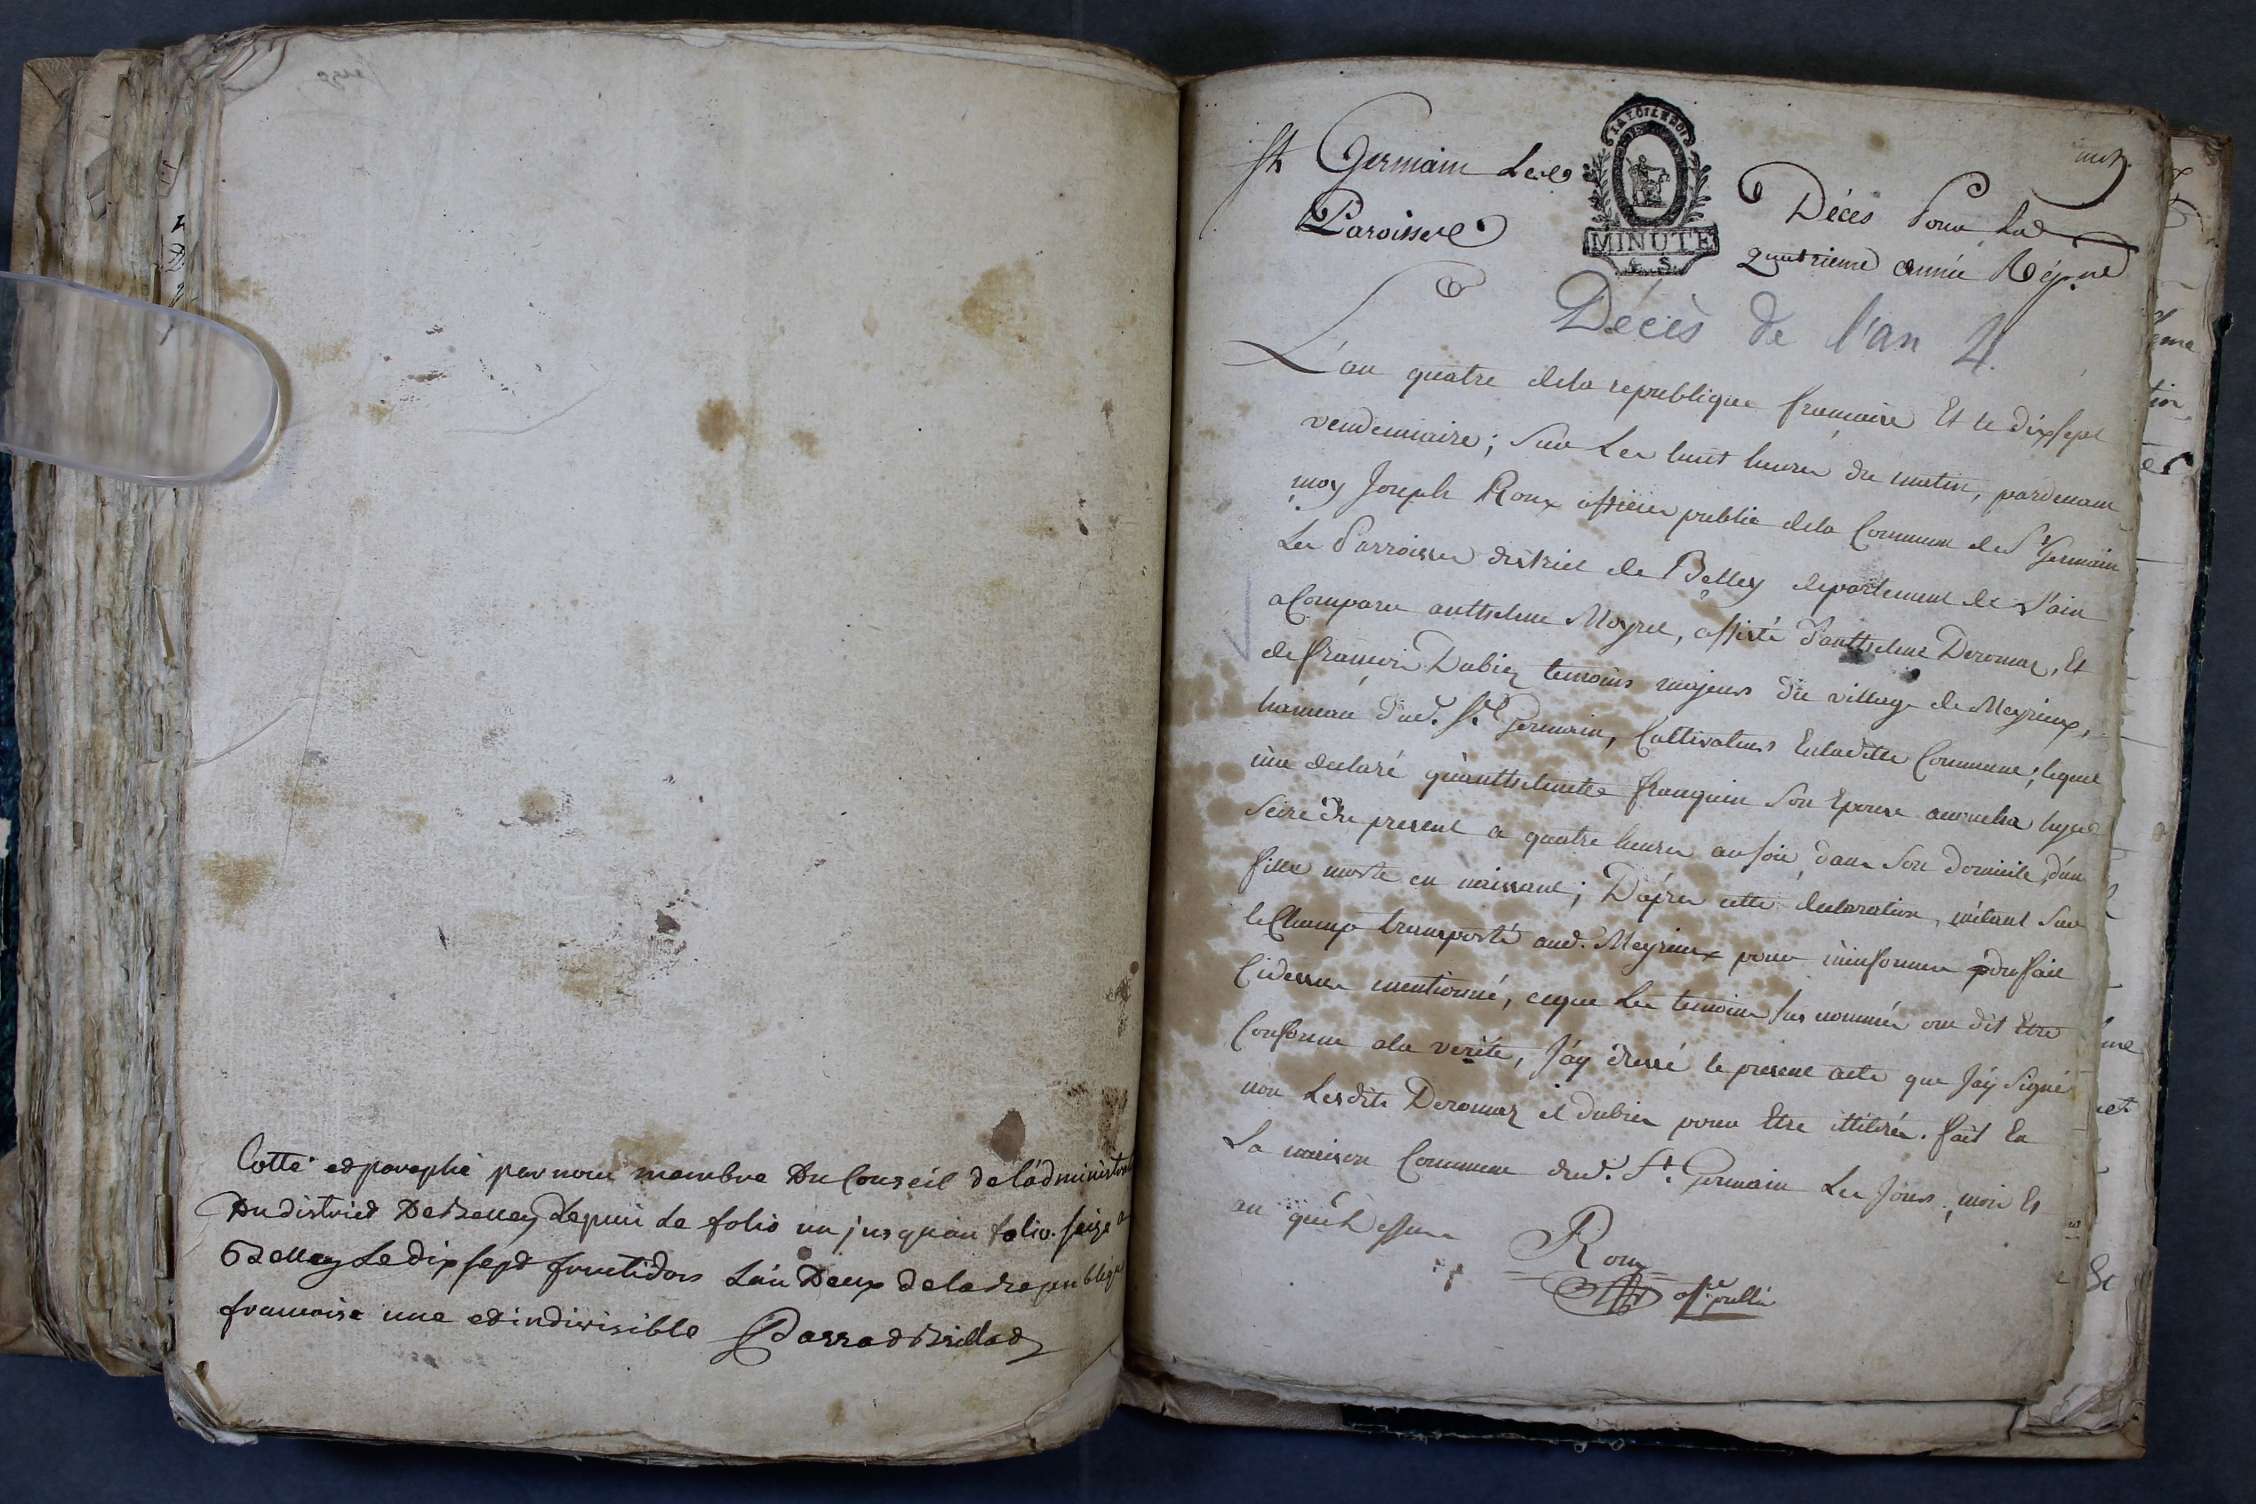 Cotté et paraphé par nous membre Du Conseil de l'administra
Du district De Belley depuis Le folio un jusquau folio seize a
Belley Le dix sept fructidor L'an Deux de la republiq
francoise une et indivisible Parrad Brillad
St Germain Les
Paroisses
LA LOI LE ROI
MINUTE
4. S.
Décès Pour La
Quatrieme année Rép.ne
Décès de l'an 4.
L'an quatre dela republique francaise Et le dix sept
vendemiaire; Sur Les huit heures du matin, pardevant
moy Joseph Roux officier public dela Commune de St Germain
Les Parroisses district de Belley departement de L'ain
a Comparu antthelme Meyret, assisté d'antthelme Deromaz, Et
de francois Dubiez temoins majeurs du village de Meyrieux,
hameau dud. St Germain, Cultivateurs Enladitte Commune; lequel
m'a declaré qu'antthelmette franquin Son Epouse accoucha hyer
Seize du present a quatre heures au soir dans Son domicile, d'un
fille morte en naissant; D'après cette declaration, m'etant Sur
le Champ transporté aud. Meyrieux pour m'informer du fait
Cidessus mentionné, ceque Les temoins sus nommés ont dit Etre
Conforme ala verité, J'ay dressé le present acte que J'ay Signé
non Lesdits Deromaz et dubiez pour Etre illitérés. fait En
La maison Commune dud. St. Germain Les Jours, mois Et
an que dessus
Roux
off. public